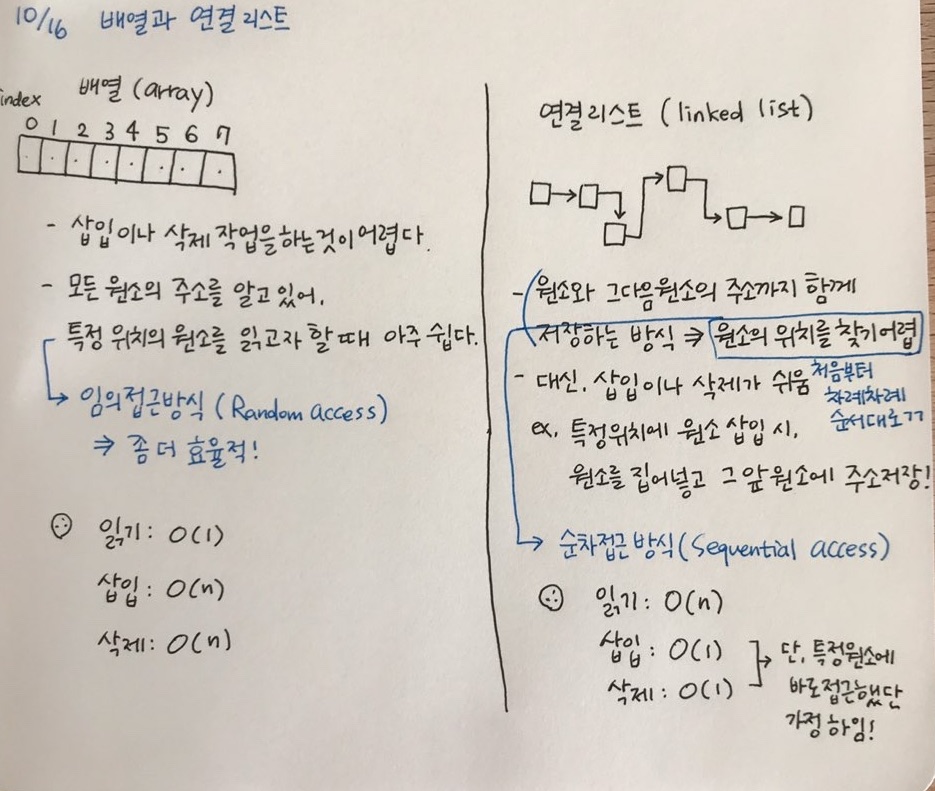 10/16 배열과 연결리스트
배열 (array)
index
0 1 2 3 4 5 6 7
- 삽입이나 삭제 작업을하는것이어렵다.
- 모든 원소의 주소를 알고 있어,
특정 위치의 원소를 읽고자 할 때 아주 쉽다.
임의접근방식 (Random access)
⇒ 좀 더 효율적!
읽기 : O(1)
삽입 : O(n)
삭제 : O(n)
연결리스트 (linked list)
- 원소와 그다음원소의 주소까지 함께
저장하는 방식 ⇒ 원소의 위치를 찾기어렵
- 대신, 삽입이나 삭제가 쉬움
처음부터
차례차례
순서대로ㄱㄱ
ex. 특정위치에 원소 삽입 시,
원소를 집어넣고 그 앞 원소에 주소저장!
순차접근 방식 (Sequential access)
읽기 : O(n)
삽입 : O(1)
삭제 : O(1)
단, 특정원소에
바로접근했단
가정하임!